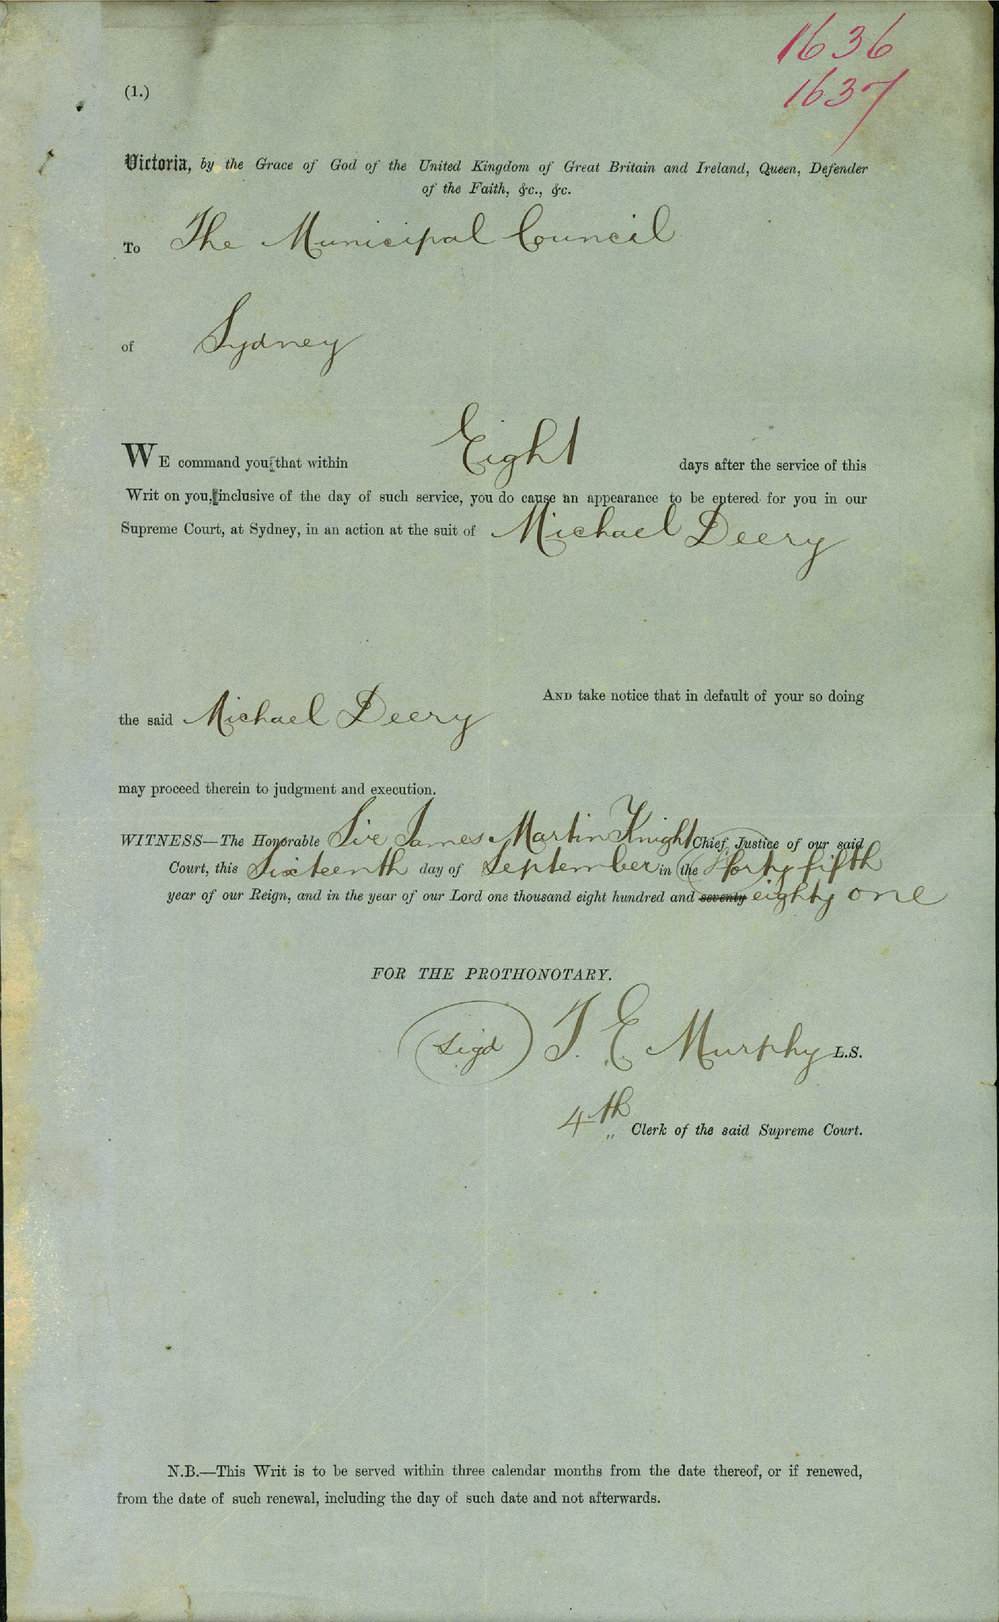 1636
1637
(1.)
Victoria, by the Grace of God of the United Kingdom of Great Britain and Ireland, Queen, Defender
of the Faith, &c., &c.
To The Municipal Council
of Sydney
WE command you that within Eight days after the service of this
Writ on you, inclusive of the day of such service, you do cause an appearance to be entered for you in our
Supreme Court, at Sydney, in an action at the suit of Michael Deery
AND take notice that in default of your so doing
the said Michael Deery
may proceed therein to judgment and execution.
WITNESS—The Honorable Sir James Martin Knight Chief Justice of our said
Court, this Sixteenth day of September in the forty fifth
year of our Reign, and in the year of our Lord one thousand eight hundred and seventy eighty one
FOR THE PROTHONOTARY.
Sigd T. E. Murphy L.S.
4th Clerk of the said Supreme Court.
N.B.—This Writ is to be served within three calendar months from the date thereof, or if renewed,
from the date of such renewal, including the day of such date and not afterwards.